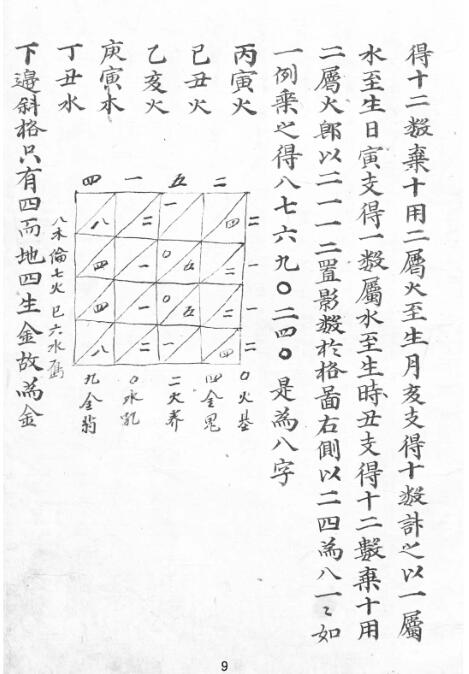 得十二数棄十用二屬火至生月亥支得十数計之以一屬
水至生日寅支得一数屬水至生時丑支得十二數棄十用
二屬火郎以二一一二置影数於格畐右側以二四為八一〻如
一例乘之得八七六九〇二四〇 是為八字
丙寅火
己丑火
乙亥火
庚寅木
丁丑水
四 一 五 二
八 二 一 四 二
四 一 〇 五 二 一
四 一 〇 五 二 一
八 二 一 四 二
〇火基
四金鬼
二火养
〇水乳
九金翁
八木倫七火 巳 六水
下邉斜格只有四而地四生金故為金
9